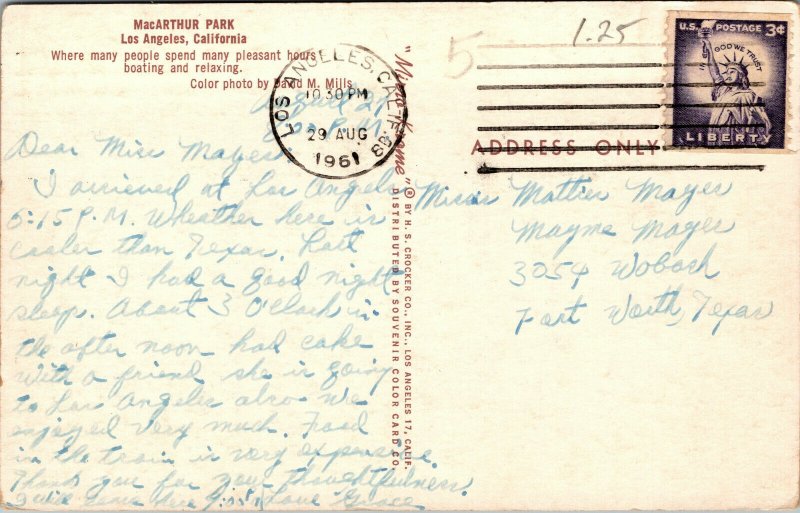 MacARTHUR PARK
Los Angeles, California
Where many people spend many pleasant hours
boating and relaxing.
Color photo by David M. Mills
LOS ANGELES, CALIF.
10 30 PM
29 AUG
1961
5
1.25
U.S. POSTAGE 3¢
IN GOD WE TRUST
LIBERTY
ADDRESS ONLY
"Mirro-Krome" ® BY H. S. CROCKER CO., INC., LOS ANGELES 17, CALIF.
DISTRIBUTED BY SOUVENIR COLOR CARD CO.
August 29
P.M.
Dear Miss Mayers
I arrieved at Los Angeles
5:15 P.M. Wheather here is
cooler than Texas. Last
night I had a good night
sleep. About 3 O'Clock in
the after noon had cake
with a friend she is going
to Los Angeles also we
enjoyed very much. Food
in the train is very expensive.
Thank you for your thoughtfulness.
Love Grace
Misses Matties Mayes
Mayme Mayes
3054 Wabash
Fort Worth, Texas